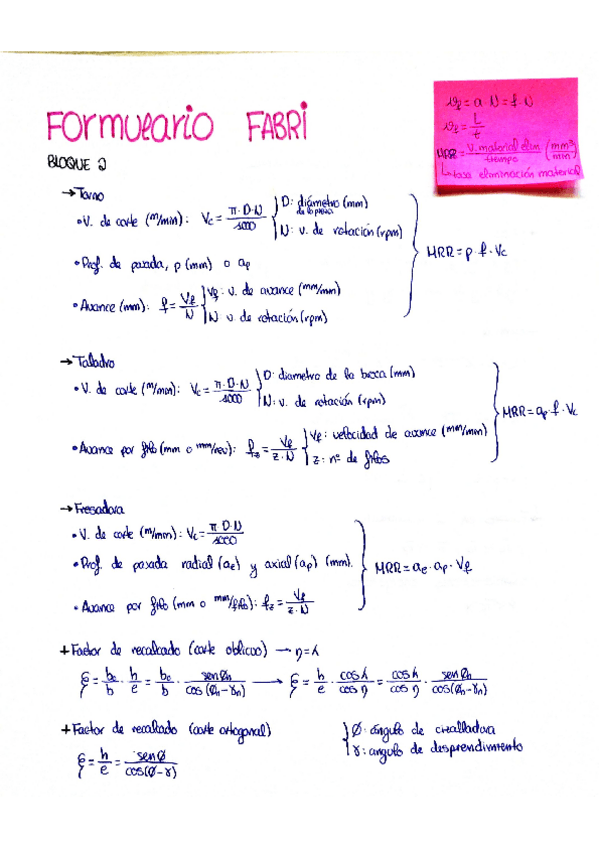 FORMULARIO FABRI
vf = a · N = f · N
vf = L/t
MRR = V. material elim / tiempo (mm³/min)
↳ tasa eliminación material
BLOQUE 2
→ Torno
• V. de corte (m/min): Vc = π·D·N/1000 { D: diámetro (mm) de la pieza
N: v. de rotación (rpm)
• Prof. de pasada, p (mm) o ap
MRR = p · f · Vc
• Avance (mm): f = Vf/N { Vf: v. de avance (mm/min)
N v. de rotación (rpm)
→ Taladro
• V. de corte (m/min): Vc = π·D·N/1000 { D: diametro de la broca (mm)
N: v. de rotación (rpm)
MRR = ap · f · Vc
• Avance por filo (mm o mm/rev): fz = Vf/z·N { Vf: velocidad de avance (mm/min)
z: nº de filos
→ Fresadora
• V. de corte (m/min): Vc = π D·N/1000
• Prof. de pasada radial (ae) y axial (ap) (mm).
MRR = ae · ap · Vf
• Avance por filo (mm o mm/filo): fz = Vf/z·N
+ Factor de recalcado (corte oblicuo) → η = λ
ξ = bc/b · h/e = bc/b · sen Øn/cos(Øn-γn) → ξ = h/e · cos λ/cos η = cos λ/cos η · sen Øn/cos(Øn-γn)
+ Factor de recalcado (corte ortogonal)
Ø: ángulo de cizalladura
γ: angulo de desprendimiento
ξ = h/e = sen Ø/cos(Ø-γ)